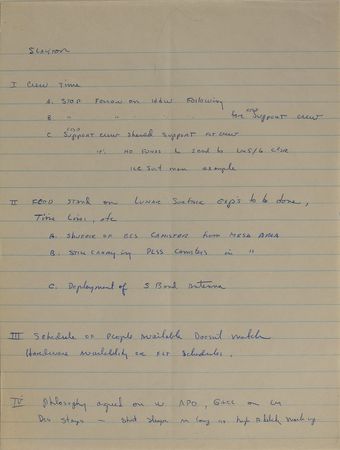 SLAYTON
I Crew Time
A. STOP Follow on H/W Following
B " " for CSD Support crew
C CSD Support crew should support FLT crew
i.e. no funds to send to LM5/6 CSD
ICE Suit man example
II FEOD stand on Lunar Surface Exp's to be done,
Time Lines, etc
A. Storage of ECS Canister from MESA AREA
B. Still carrying PLSS Canisters in "
C. Deployment of S Band Antenna
III Schedule of People Available Doesn't match
Hardware availability or FLT Schedules.
IV Philosophy agreed on w. APO, GAEC on LM
Dev Stays — Shit as long as